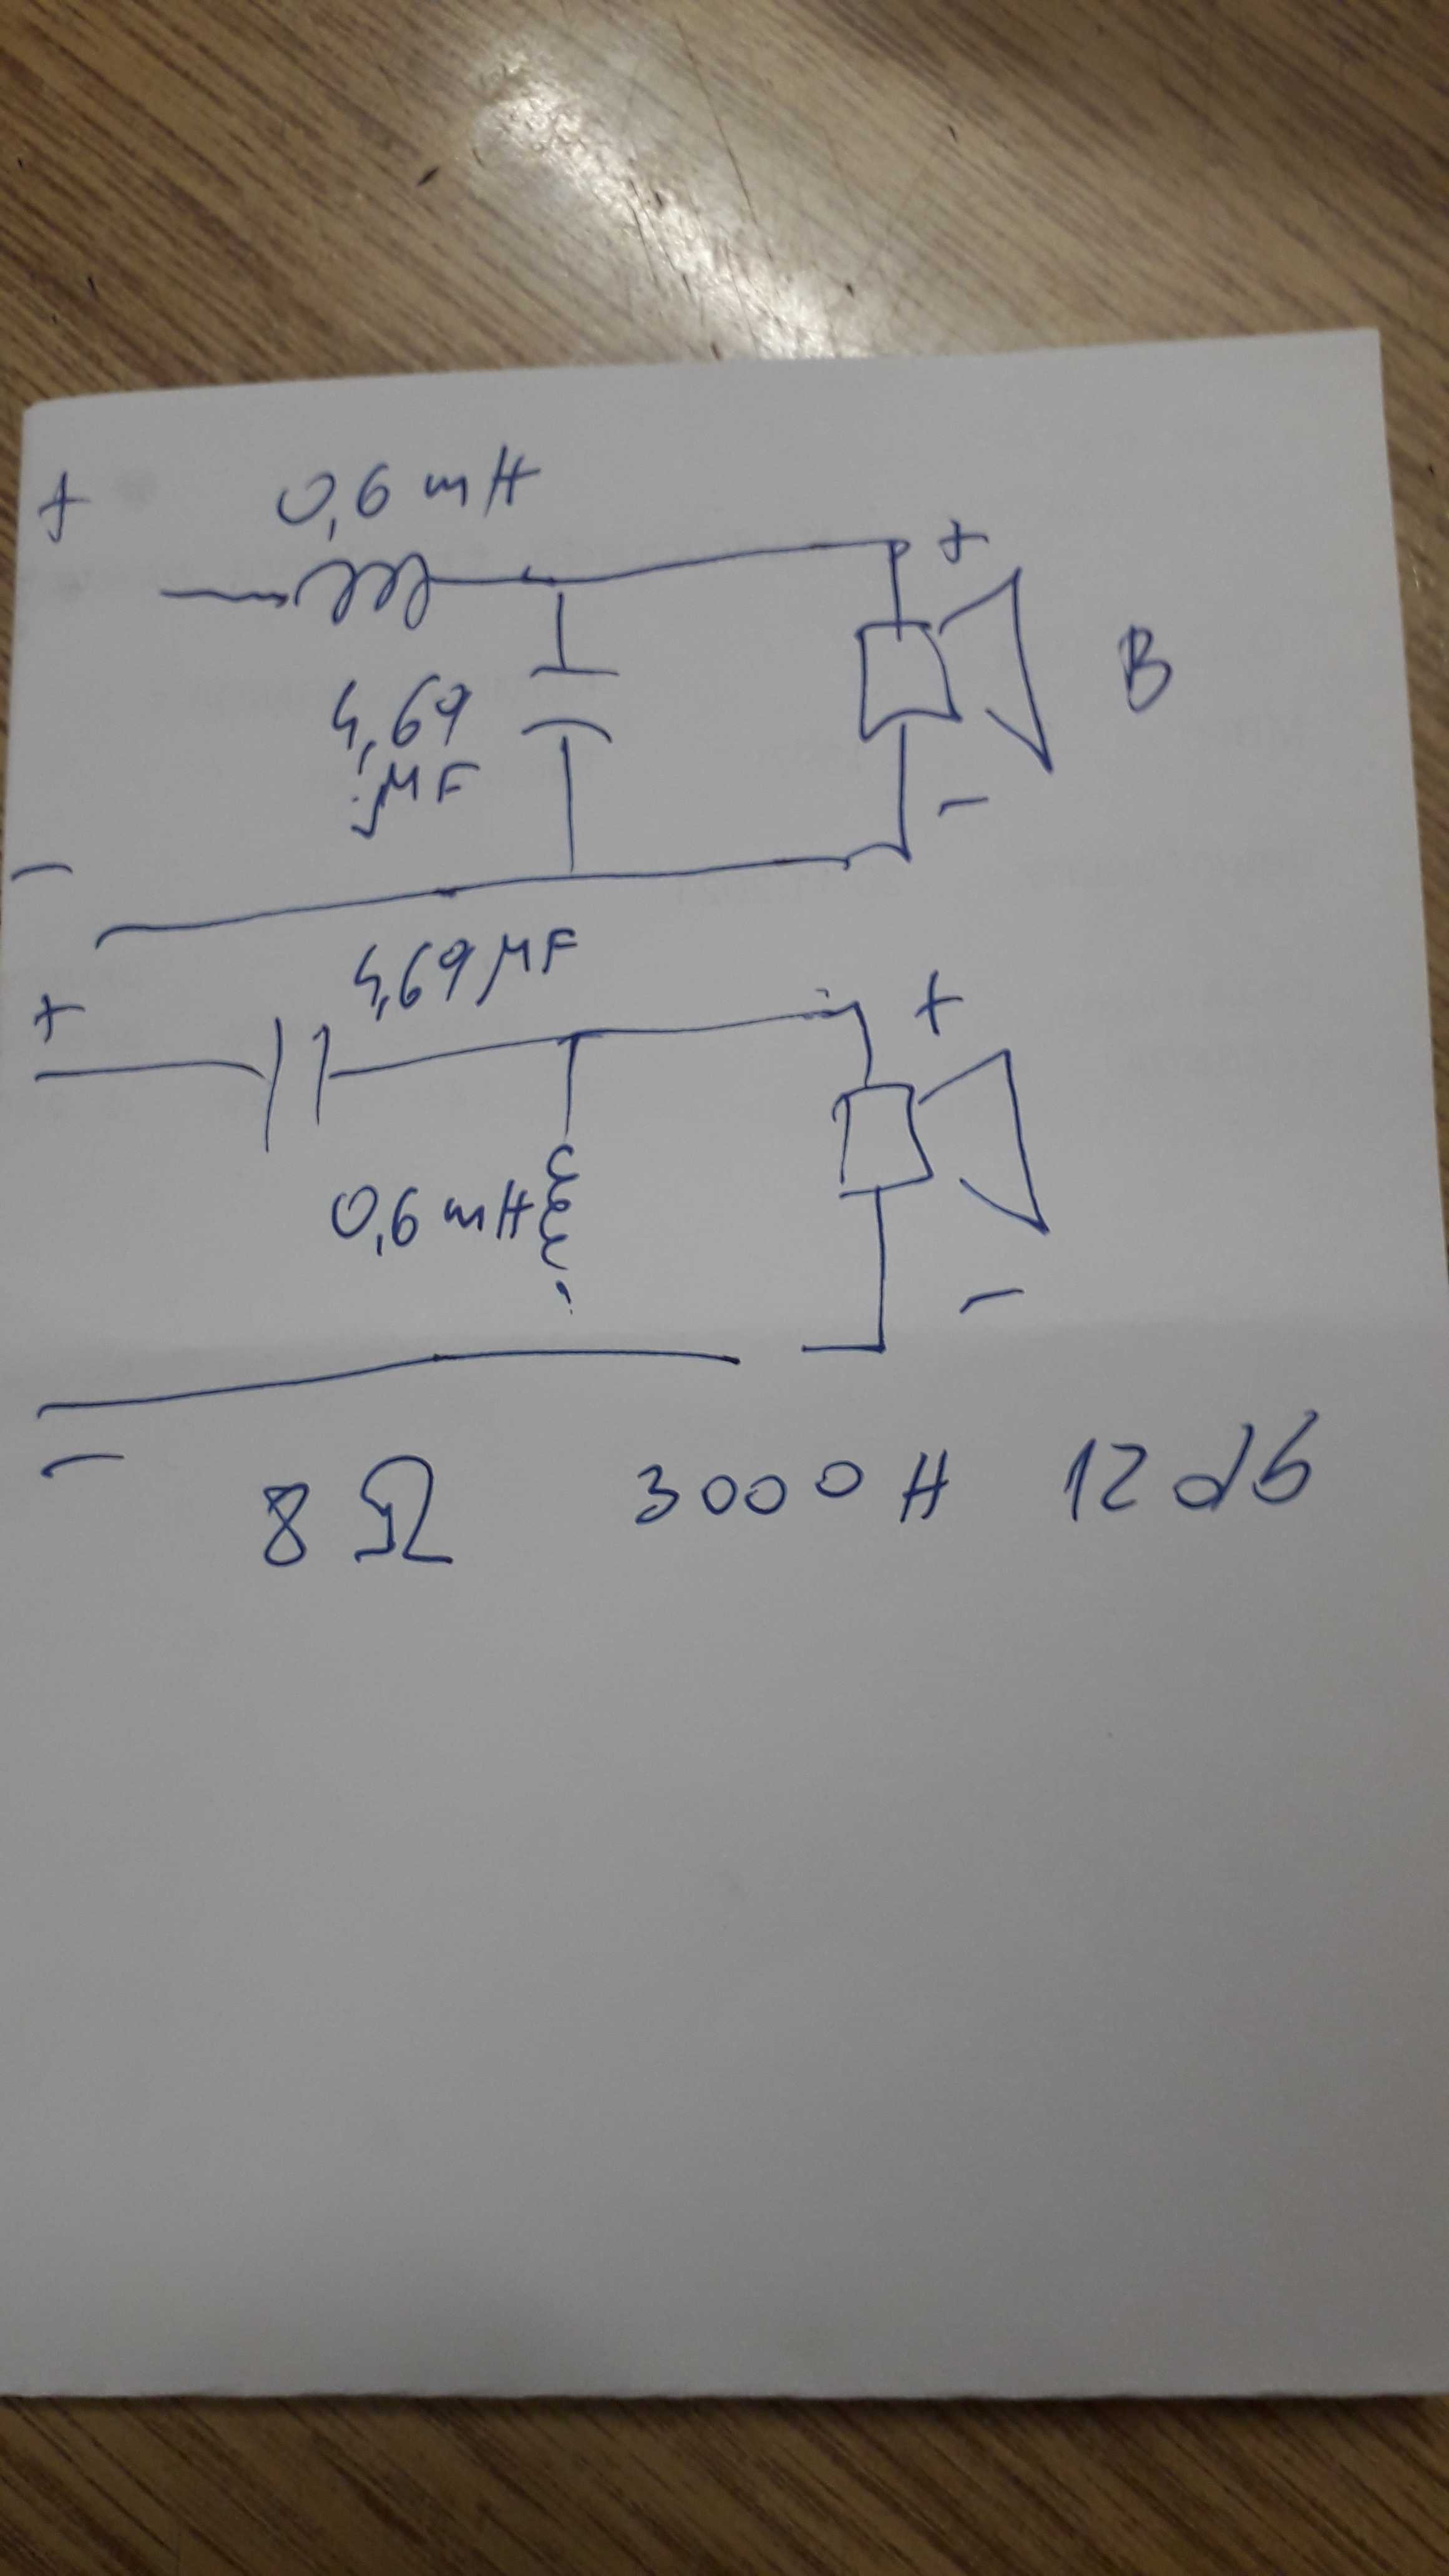 + 0,6 mH
+
4,69
μF
B
-
-
4,69 μF
+
+
0,6 mH
-
-
8 Ω 3000 H 12 db